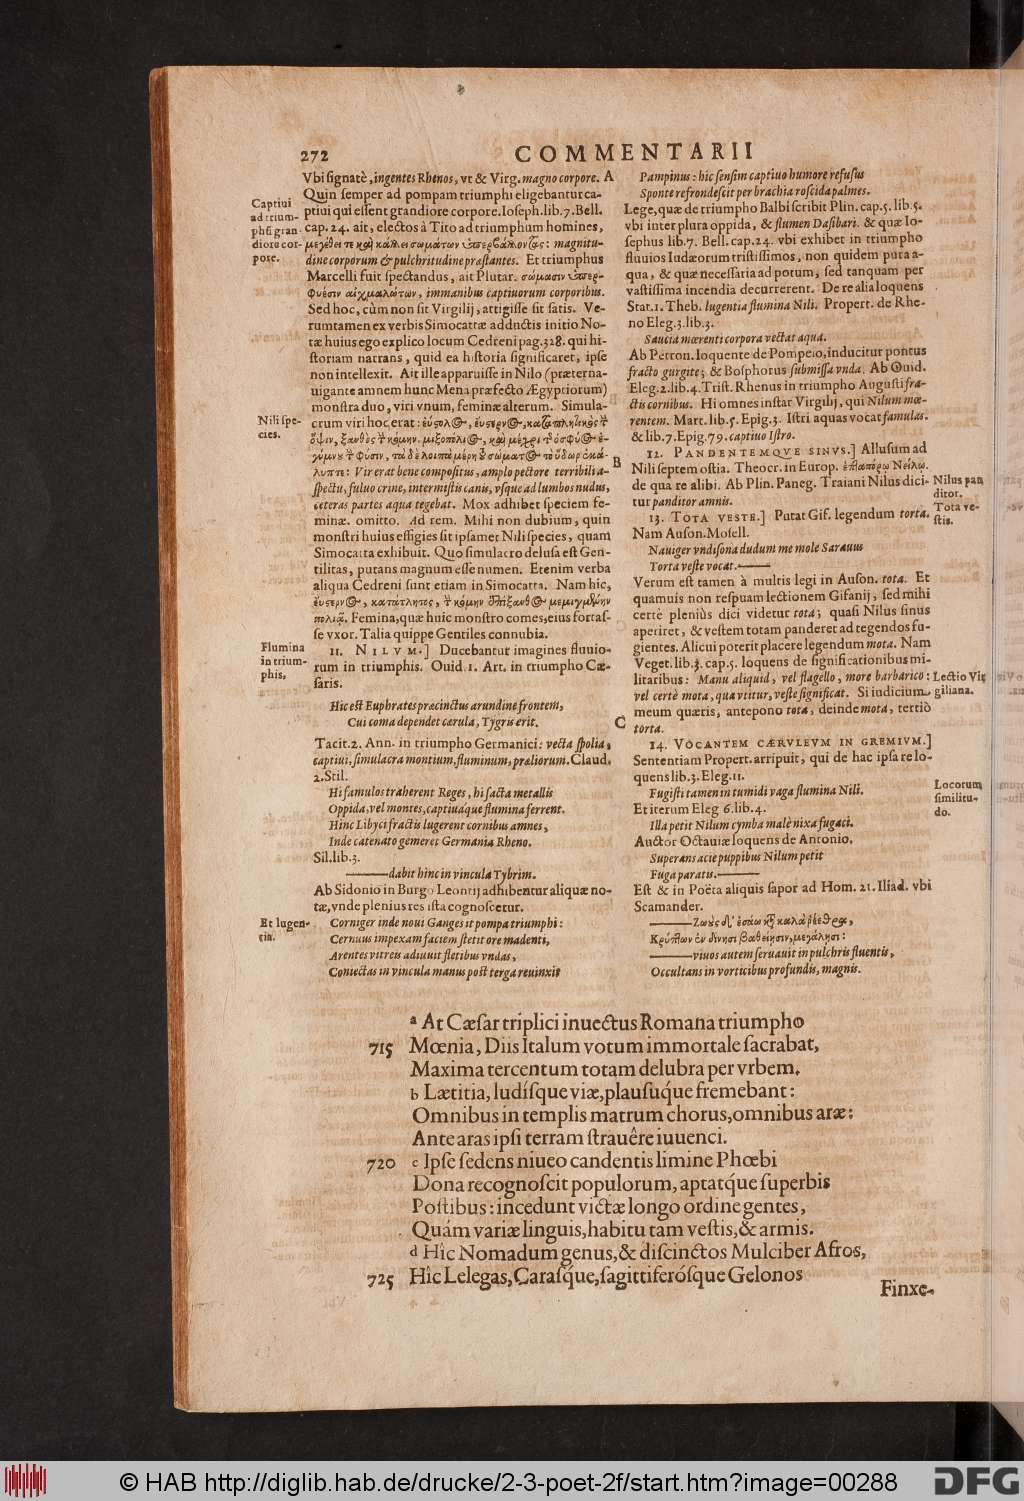 272
COMMENTARII
Vbi signatè, ingentes Rhenos, vt & Virg. magno corpore. A
Quin semper ad pompam triumphi eligebantur ca-
ptiui qui essent grandiore corpore. Ioseph. lib. 7. Bell.
cap. 24. ait, electos à Tito ad triumphum homines,
μεγέθει τε καὶ κάλλει σωμάτων ὑπερβάλλοντας: magnitu-
dine corporum & pulchritudine præstantes. Et triumphus
Marcelli fuit spectandus, ait Plutar. σώμασιν ὑπερ-
φυέσιν αἰχμαλώτων, immanibus captiuorum corporibus.
Sed hoc, cùm non sit Virgilij, attigisse sit satis. Ve-
rumtamen ex verbis Simocattæ adductis initio No-
tæ huius ego explico locum Cedreni pag. 328. qui hi-
storiam narrans, quid ea historia significaret, ipse
non intellexit. Ait ille apparuisse in Nilo (præterna-
uigante amnem hunc Mena præfecto Ægyptiorum)
monstra duo, viri vnum, feminæ alterum. Simula-
crum viri hoc erat: εὔστολος, εὔστερνος, καταπληκτικὸς τ̀
ὄψιν, ξανθὸς τ̀ κόμην. μιξοπόλιος, καὶ μέχρι τ̀ ὀσφύος ἐ-
γύμνου τ̀ φύσιν, τὰ δὲ λοιπὰ μέρη τοῦ σώματος τὸ ὕδωρ ἐκά-
λυπτε: Vir erat bene compositus, amplo pectore terribili a- B
spectu, fuluo crine, intermistis canis, vsque ad lumbos nudus,
ceteras partes aqua tegebat. Mox adhibet speciem fe-
minæ. omitto. Ad rem. Mihi non dubium, quin
monstri huius effigies sit ipsamet Nili species, quam
Simocatta exhibuit. Quo simulacro delusa est Gen-
tilitas, putans magnum esse numen. Etenim verba
aliqua Cedreni sunt etiam in Simocatta. Nam hic,
εὔστερνος, κατάπληκτος, τ̀ κόμην ἐπίξανθος μεμιγμένην
πολιᾷ. Femina, quæ huic monstro comes, eius fortas-
se vxor. Talia quippe Gentiles connubia.
11. NILVM.] Ducebantur imagines fluuio-
rum in triumphis. Ouid. 1. Art. in triumpho Cæ-
saris.
Hic est Euphrates præcinctus arundine frontem,
Cui coma dependet cærula, Tygris erit. C
Tacit. 2. Ann. in triumpho Germanici: vecta spolia,
captiui, simulacra montium, fluminum, præliorum. Claud.
2. Stil.
Hi famulos traherent Reges, hi facta metallis
Oppida, vel montes, captiuáque flumina ferrent.
Hinc Libyci fractis lugerent cornibus amnes,
Inde catenato gemeret Germania Rheno.
Sil. lib. 3.
——dabit hinc in vincula Tybrim.
Ab Sidonio in Burgo Leontij adhibentur aliquæ no-
tæ, vnde plenius res ista cognoscetur.
Corniger inde noui Ganges it pompa triumphi:
Cernuus impexam faciem stetit ore madenti,
Arentes vitreis adiuuit fletibus vndas,
Coniectas in vincula manus post terga reuinxit
Captiui
ad trium-
phũ gran
diore cor-
pore.
Nili spe-
cies.
Flumina
in trium-
phis,
Et lugen-
tia.
Pampinus: hic sensim captiuo humore refusus
Sponte refrondescit per brachia roscida palmes.
Lege, quæ de triumpho Balbi scribit Plin. cap. 5. lib. 5.
vbi inter plura oppida, & flumen Dasibari. & quæ Io-
sephus lib. 7. Bell. cap. 24. vbi exhibet in triumpho
fluuios Iudæorum tristissimos, non quidem pura a-
qua, & quæ necessaria ad potum, sed tanquam per
vastissima incendia decurrerent. De re alia loquens
Stat. 1. Theb. lugentia flumina Nili. Propert. de Rhe-
no Eleg. 3. lib. 3.
Saucia mœrenti corpora vectat aqua.
Ab Petron. loquente de Pompeio, inducitur pontus
fracto gurgite; & Bosphorus submissa vnda. Ab Ouid.
Eleg. 2. lib. 4. Trist. Rhenus in triumpho Augusti fra-
ctis cornibus. Hi omnes instar Virgilij, qui Nilum mœ-
rentem. Mart. lib. 5. Epig. 3. Istri aquas vocat famulas.
& lib. 7. Epig. 79. captiuo Istro.
12. PANDENTEMQVE SINVS.] Allusum ad
Nili septem ostia. Theocr. in Europ. ἑπταπόρῳ Νείλῳ.
de qua re alibi. Ab Plin. Paneg. Traiani Nilus dici-
tur panditor amnis.
13. TOTA VESTE.] Putat Gif. legendum torta.
Nam Auson. Mosell.
Nauiger vndisona dudum me mole Sarauus
Torta veste vocat.——
Verum est tamen à multis legi in Auson. tota. Et
quamuis non respuam lectionem Gifanij, sed mihi
certè pleniùs dici videtur tota; quasi Nilus sinus
aperiret, & vestem totam panderet ad tegendos fu-
gientes. Alicui poterit placere legendum mota. Nam
Veget. lib. 3. cap. 5. loquens de significationibus mi-
litaribus: Manu aliquid, vel flagello, more barbarico:
vel certè mota, qua vtitur, veste significat. Si iudicium
meum quæris, antepono tota, deinde mota, tertiò
torta.
14. VOCANTEM CÆRVLEVM IN GREMIVM.]
Sententiam Propert. arripuit, qui de hac ipsa re lo-
quens lib. 3. Eleg. 11.
Fugisti tamen in tumidi vaga flumina Nili.
Et iterum Eleg 6. lib. 4.
Illa petit Nilum cymba malè nixa fugaci.
Auctor Octauiæ loquens de Antonio,
Superans acie puppibus Nilum petit
Fuga paratis.——
Est & in Poëta aliquis sapor ad Hom. 21. Iliad. vbi
Scamander.
——Ζωοὺς δ' ἐσάω κατὰ καλὰ ῥέεθρα,
Κρύπτων ἐν δίνῃσι βαθείῃσιν, μεγάλῃσι:
——viuos autem seruauit in pulchris fluentis,
Occultans in vorticibus profundis, magnis.
Nilus pan
ditor.
Tota ve-
stis.
Lectio Vir
giliana.
Locorum
similitu-
do.
a At Cæsar triplici inuectus Romana triumpho
715 Mœnia, Diis Italum votum immortale sacrabat,
Maxima tercentum totam delubra per vrbem.
b Lætitia, ludísque viæ, plausúque fremebant:
Omnibus in templis matrum chorus, omnibus aræ:
Ante aras ipsi terram strauêre iuuenci.
720 c Ipse sedens niueo candentis limine Phœbi
Dona recognoscit populorum, aptatq́ue superbis
Postibus: incedunt victæ longo ordine gentes,
Quám variæ linguis, habitu tam vestis, & armis.
d Hîc Nomadum genus, & discinctos Mulciber Afros,
725 Hîc Lelegas, Carasq́ue, sagittiferósque Gelonos
Finxe-
© HAB http://diglib.hab.de/drucke/2-3-poet-2f/start.htm?image=00288
DFG